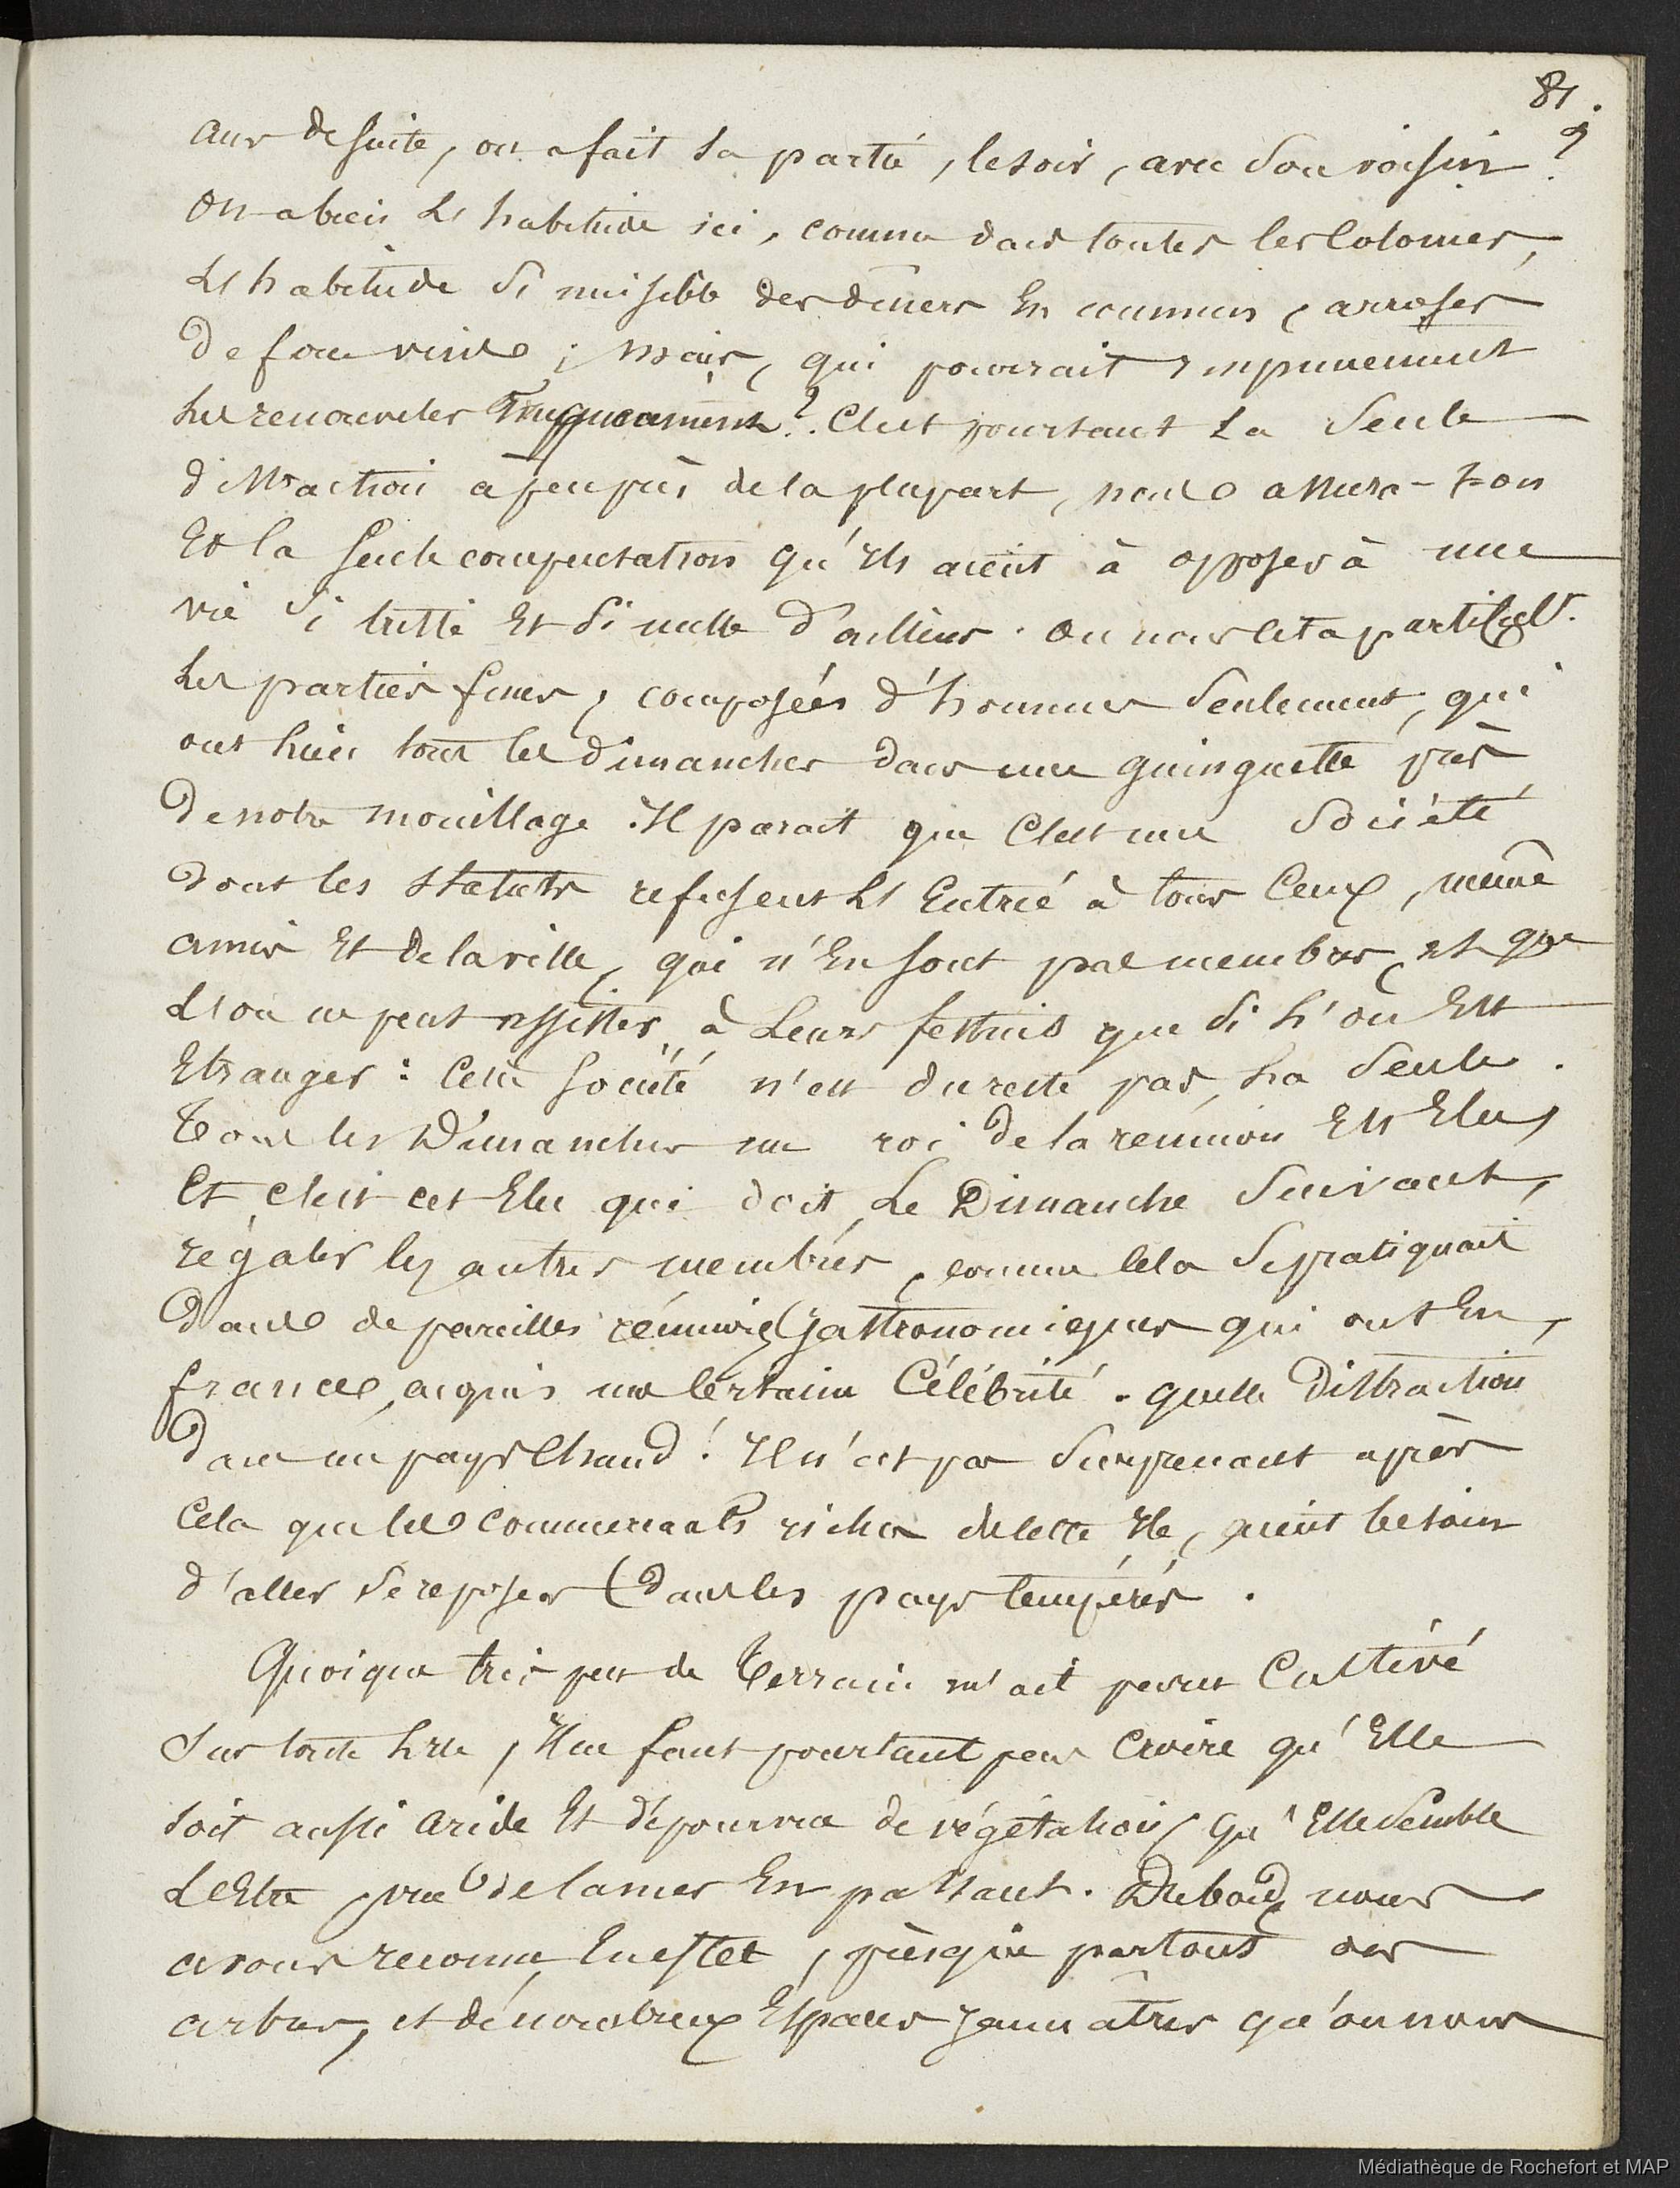 81.
ans de suite, on a fait sa partie, le soir, avec son voisin ?
On a bien l'habitude ici, comme dans toutes les Colonies,
L'habitude si nuisible des diners En commun, arrosés
De fou vins ; mais, qui pourrait impunément
les renouveler ? C'est pourtant La Seule
distraction à peu près de la plupart, nous assura-t-on
Et la seule compensation qu'ils aient à opposer à une
vie Si triste Et Si nulle d'ailleurs. On nous cita particult.
Les parties fines, composées d'hommes Seulement, qui
ont lieu tous les dimanches dans une guinguette près
De notre mouillage. Il parait que C'est une Société
Dont les statuts refusent L'Entrée à tous Ceux, même
amis Et de la ville, qui n'En sont pas membres, et que
L'on ne peut assister à Leurs festins que Si L'on Est
Etranger : Cette société n'est du reste pas La Seule.
Tous les Dimanches un roi de la réunion Est Elu,
Et c'est cet Elu qui doit, Le Dimanche Suivant,
régaler les autres membres, comme Cela Se pratiquait
Dans de pareilles réunions Gastronomiques qui ont En
france, acquis une Certaine Célébrité. quelle Distraction
Dans un pays Chaud ! Il n'est pas Surprenant après
Cela que les commercants riches de Cette Ile, aient besoin
d'aller Se reposer Dans les pays tempérés.
Quoique très peu de Terrain m'ait parut Cultivé
Sur toute L'Ile, Il ne faut pourtant pas Croire qu'Elle
soit aussi aride Et dépourvue de végétation, qu'Elle Semble
L'Etre, vue de la mer En passant. Du bord, nous
avons reconnu, En effet, presque partout des
arbres, et de nombreux Espaces Jaunâtres qu'on nous
Médiathèque de Rochefort et MAP